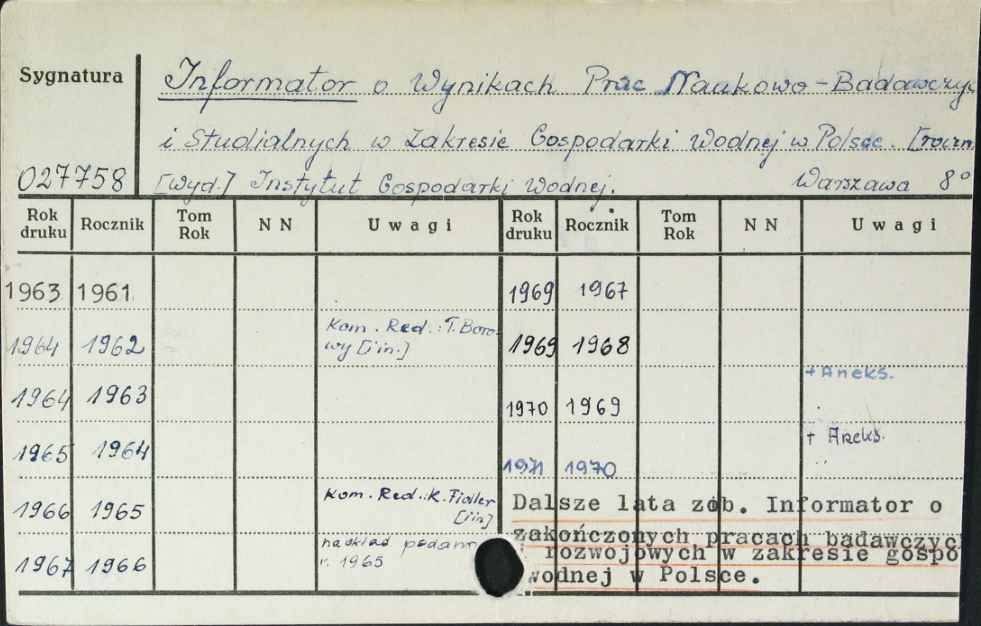 Sygnatura
Informator o Wynikach Prac Naukowo-Badawczyc
i Studialnych w Zakresie Gospodarki Wodnej w Polsce. [roczn
027758 [wyd.] Instytut Gospodarki Wodnej. Warszawa 8°
Rok druku Rocznik Tom Rok N N Uwagi Rok druku Rocznik Tom Rok N N Uwagi
1963 1961 1969 1967
1964 1962 Kom. Red.: T. Boro-
wy [i in.] 1969 1968
+ Aneks.
1964 1963 1970 1969
+ Aneks.
1965 1964 1971 1970
1966 1965 Kom. Red.: K. Fidler
[i in]
Dalsze lata zob. Informator o
zakończonych pracach badawczyc
1967 1966 nakład podan
r. 1965
i rozwojowych w zakresie gospo
wodnej w Polsce.